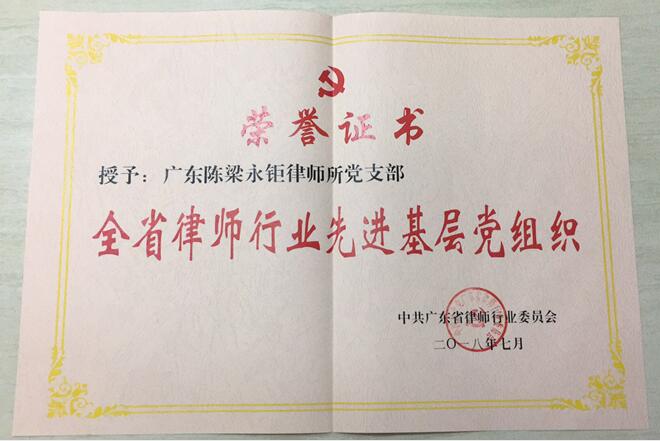 荣誉证书
授予：广东陈梁永钜律师所党支部
全省律师行业先进基层党组织
中共广东省律师行业委员会
二〇一八年七月